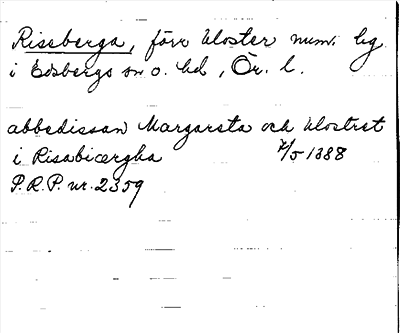 Riseberga, förr kloster num. lg
i Edsbergs sn o. hd, Ör. l.
abbedissan Margareta och klostret
i Risabiærgha 7/5 1388
P.R.P. nr. 2359